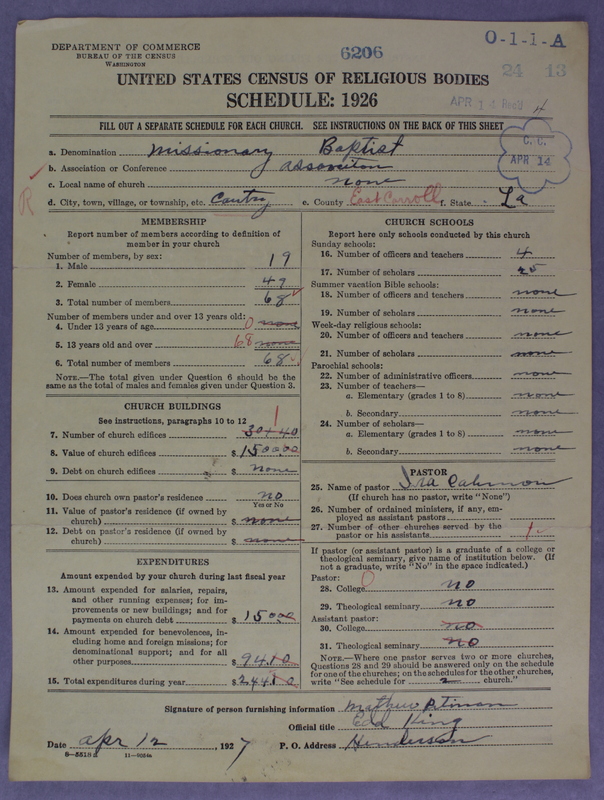 DEPARTMENT OF COMMERCE
BUREAU OF THE CENSUS
WASHINGTON
6206
O-1-1-A
24 13
UNITED STATES CENSUS OF RELIGIOUS BODIES
SCHEDULE: 1926
APR 14
FILL OUT A SEPARATE SCHEDULE FOR EACH CHURCH. SEE INSTRUCTIONS ON THE BACK OF THIS SHEET
C. C.
APR 14
a. Denomination Missionary Baptist
b. Association or Conference
c. Local name of church none
R
d. City, town, village, or township, etc. e. County East Carroll f. State La
MEMBERSHIP
Report number of members according to definition of
member in your church
Number of members, by sex:
1. Male 19
2. Female 49
3. Total number of members 68
Number of members under and over 13 years old:
4. Under 13 years of age 0 none
5. 13 years old and over 68 none
6. Total number of members 68
NOTE.—The total given under Question 6 should be the
same as the total of males and females given under Question 3.
CHURCH BUILDINGS
See instructions, paragraphs 10 to 12
1
7. Number of church edifices 30+40
8. Value of church edifices $ 150000
9. Debt on church edifices $ none
10. Does church own pastor's residence no
Yes or No
11. Value of pastor's residence (if owned by
church) $ none
12. Debt on pastor's residence (if owned by
church) $ none
EXPENDITURES
Amount expended by your church during last fiscal year
13. Amount expended for salaries, repairs,
and other running expenses; for im-
provements or new buildings; and for
payments on church debt $ 15000
14. Amount expended for benevolences, in-
cluding home and foreign missions; for
denominational support; and for all
other purposes $ 9410
15. Total expenditures during year $ 24410
CHURCH SCHOOLS
Report here only schools conducted by this church
Sunday schools:
16. Number of officers and teachers 4
17. Number of scholars 25
Summer vacation Bible schools:
18. Number of officers and teachers none
19. Number of scholars none
Week-day religious schools:
20. Number of officers and teachers none
21. Number of scholars none
Parochial schools:
22. Number of administrative officers none
23. Number of teachers—
a. Elementary (grades 1 to 8) none
b. Secondary none
24. Number of scholars—
a. Elementary (grades 1 to 8) none
b. Secondary none
PASTOR
25. Name of pastor Ira
(If church has no pastor, write "None")
26. Number of ordained ministers, if any, em-
ployed as assistant pastors
27. Number of other churches served by the
pastor or his assistants 1
If pastor (or assistant pastor) is a graduate of a college or
theological seminary, give name of institution below. (If
not a graduate, write "No" in the space indicated.)
Pastor: 0
28. College no
29. Theological seminary no
Assistant pastor:
30. College no
31. Theological seminary no
NOTE.—Where one pastor serves two or more churches,
Questions 28 and 29 should be answered only on the schedule
for one of the churches; on the schedules for the other churches,
write "See schedule for 2 church."
Signature of person furnishing information Mathew Pitman
Official title
Date apr 12, 1927 P. O. Address Henderson
8-5518a 11-9084a